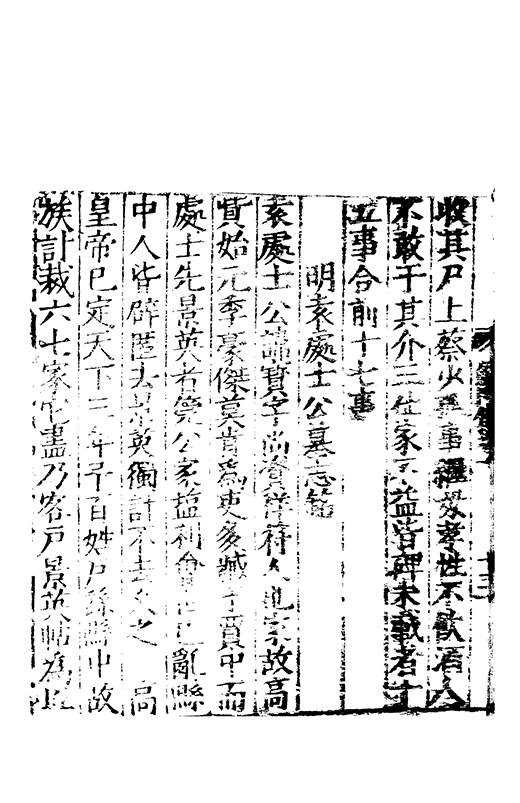 收其尸上蔡少事事繼母孝性不飲酒人
不敢干其介三世家不益皆碑未載者十
五事合前十七事
明袁處士公墓志銘
袁處士公諱寶字尚賓祥符人也家故高
貲始元季豪傑莫肯為吏多藏于賈中而
處士先景英者筦公家鹽利會世亂縣
中人皆辟匿去景英獨計不去久之 高
皇帝已定天下三年予百姓戶繇縣中故
族計裁六七家它盡乃客戶景英帖為
十三